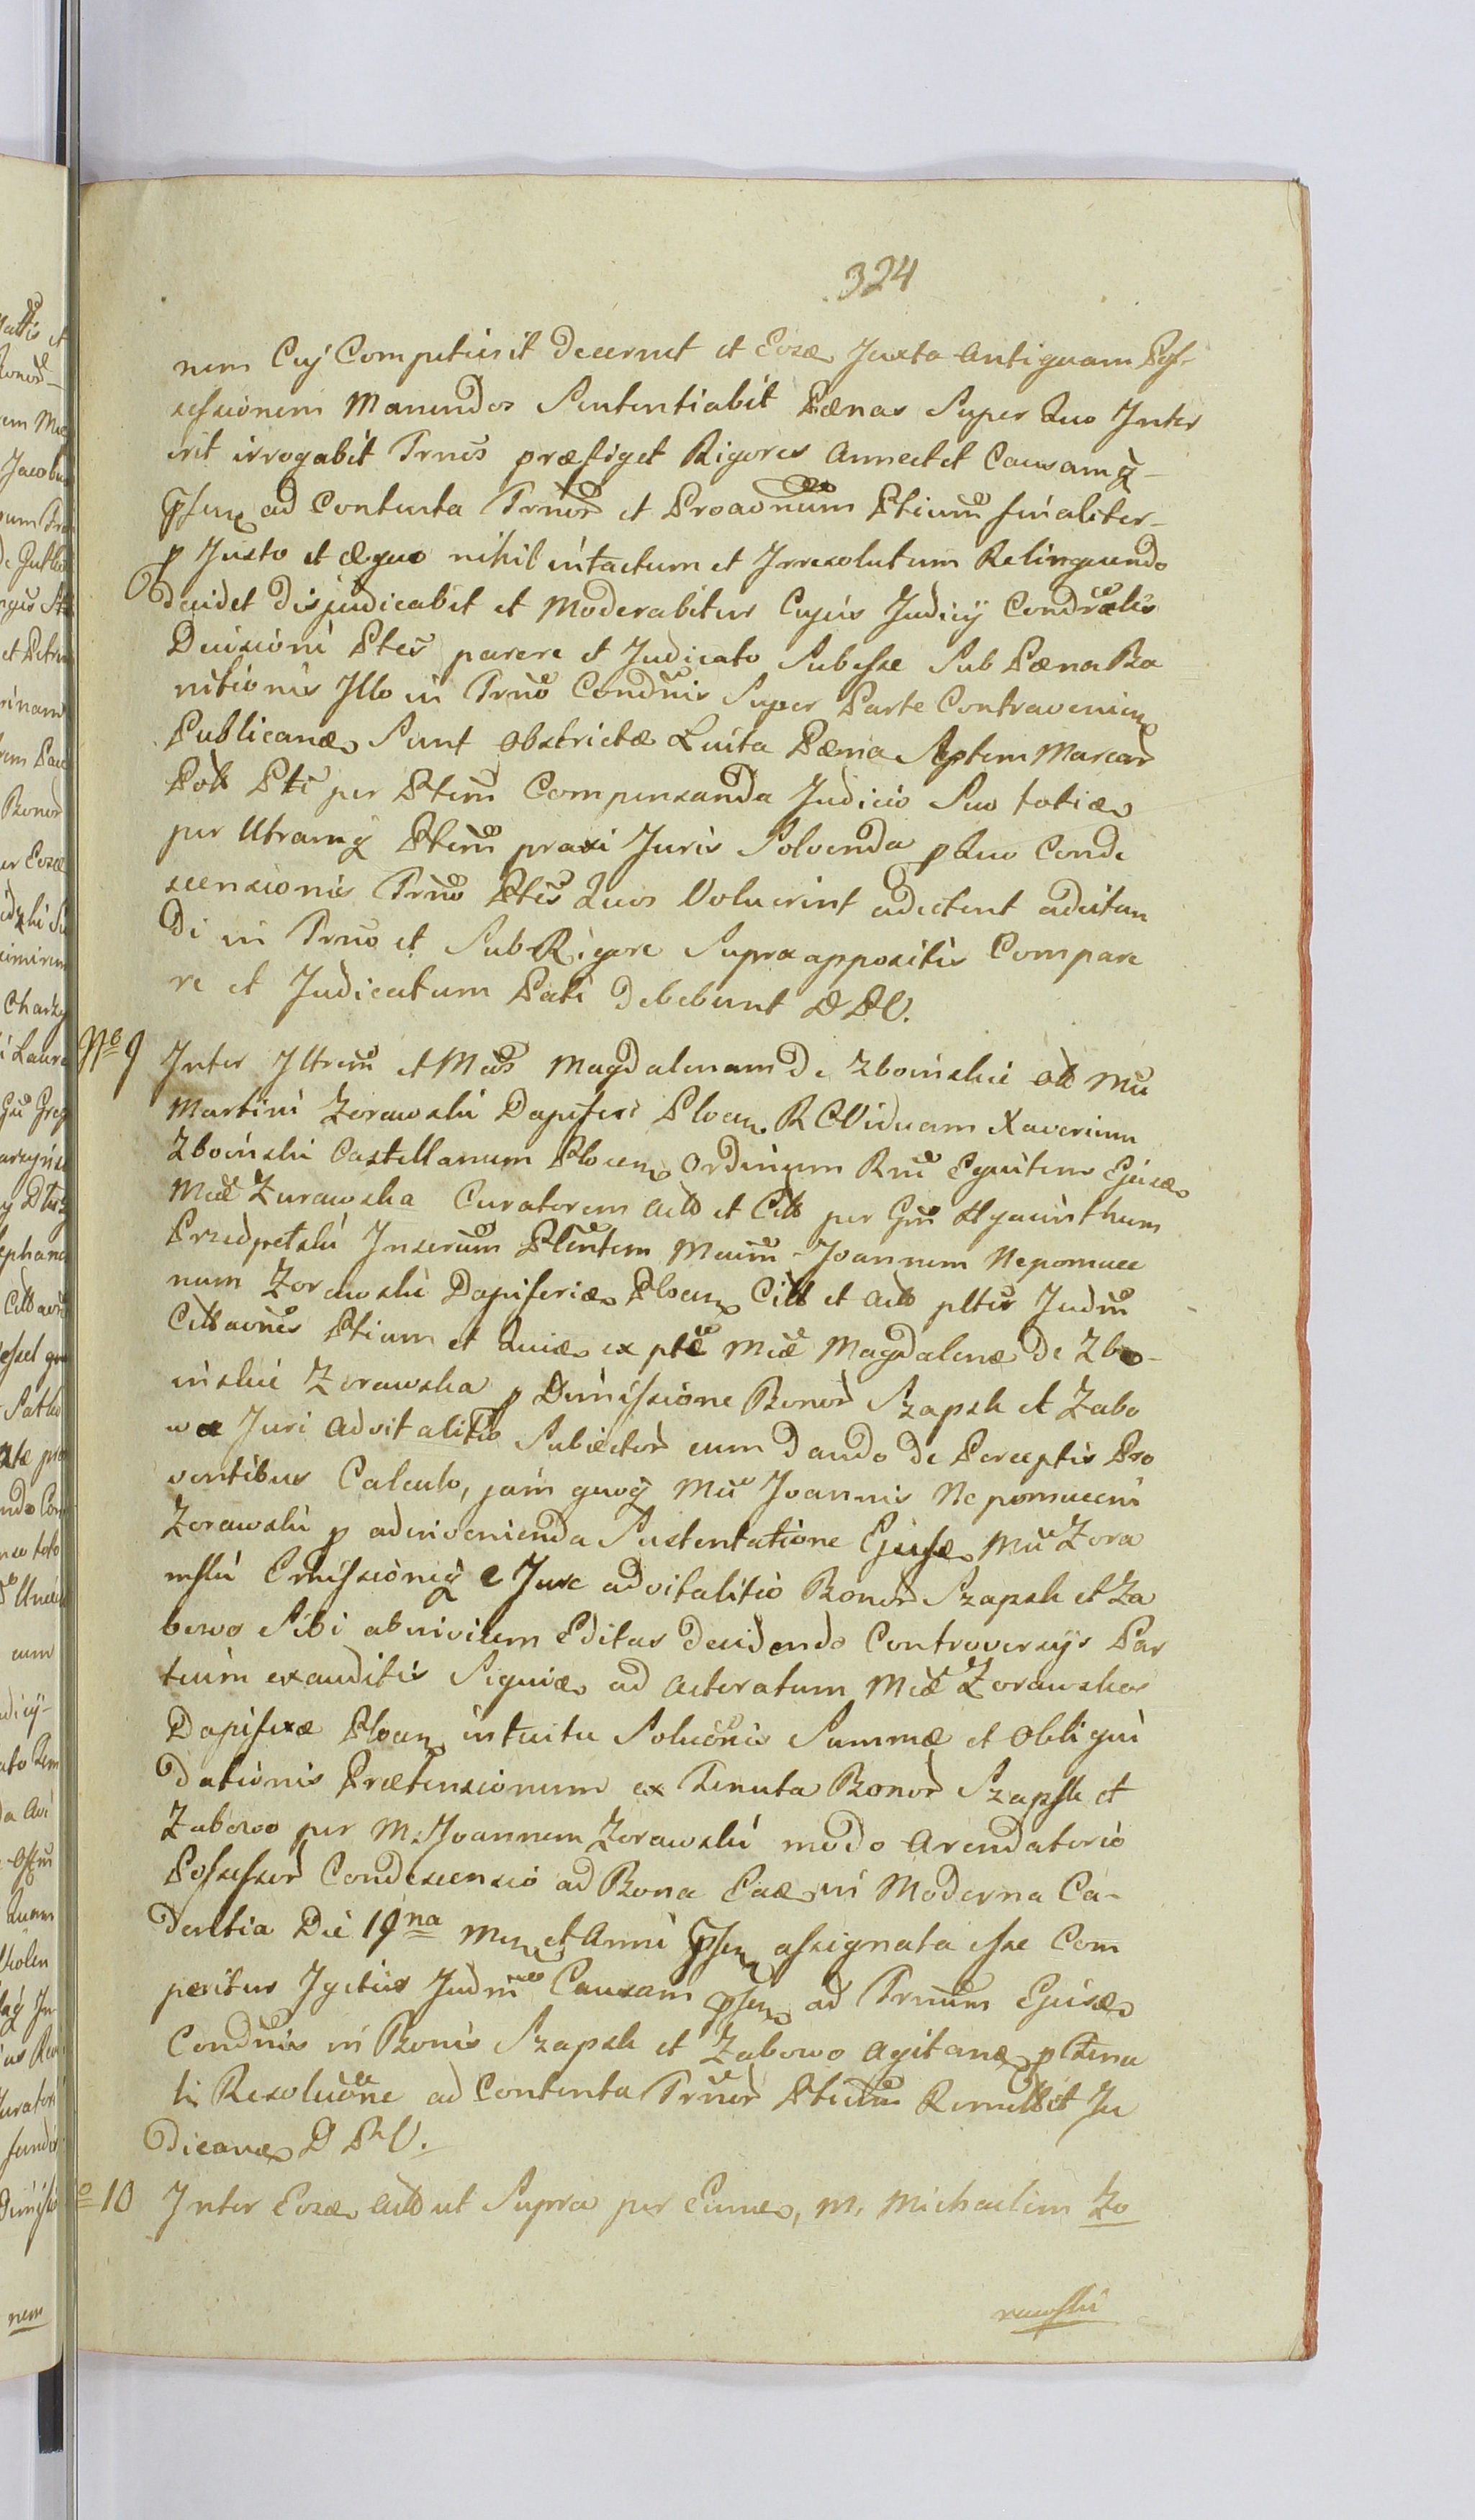 324
nem Cuj Competierit decernet et Eosæ Juxta Antiquam Pos-
sessionem Manendos Sententiabit Pænas Super Quo Inter
erit irrogabit Trnos præfiget Rigores Annectet Causamq̃
Psen ad Contenta Trnor et Proaonum Ptium finaliter
p Justo et æquo nihil intactum et Irresolutum Relinquendo
decidet disjudicabit et Moderabitur Cujus Judicÿ Condralis
Decisioni Ptes parere et Judicato Subesse Sub Pæna Ba
nitionis Illo in Trno Condnis Super Parte Contravenien
Publicanæ Sunt obstrictæ Luita Pæna Septem Marcar
Poll Pti per Ptem Compensanda Judicio Suo totiæ
per Utramq̃ Ptem praxi Juris Solvenda p Quo Conde
scensionis Trno Ptes Quos Voluerint adcitent adcitan
di in Trno et Sub Rigore Supra appositis Compare
re et Judicatum Pati debebunt D P V.
No 9 Inter Illrem et Meas Magdalenam de Zboinskie olt Mci
Martini Zorawski Dapiferi Plocen. R C Viduam Xaverium
Zboinski Castellanum Plocen Ordinum Rni Equitem Ejusæ
Meæ Zurawska Curatorem Actt et Citt per Gm Hyacinthum
Przedpetski Inserum Plentem Mcum Joannem Nepomuce
num Zorawski Dapiferiæ Plocen Citt et Actt pltes Judm
Cittaones Ptium et Quiæ ex pte Meæ Magdalenæ de Zbo-
inskie Zorawska p Dimissione Bonor Szapsk et Zabo
wa Juri advitalitio Subiector cum dando de Perceptis Pro
ventibus Calculo, jam quoq̃ Mci Joannis Nepomuceni
Zorawski p adinvenienda Sustentatione Ejusæ Mci Zora
wski Emissioniq̃ e Jure advitalitio Bonor Szapsk et Za
bowo Sibi abinvicem Editas decidendo Controversÿs Par
tium exauditis Siquiæ ad Acteratum Meæ Zorawskæ
Dapiferæ Plocen intuitu Soluonis Summæ et obliqui
dationis Prætensionum ex Tenuta Bonor Szapsk et
Zabowo per M. Joannem Zorawski modo Arendatorio
Possessor Condescensio ad Bona Eaæ in Moderna Ca-
dentia Die 19na Men et Anni Psen assignata esse Com
peritur Igitur Judm Causam psen ad Trnum Ejusæ
Condnis in Bonis Szapsk et Zabowo agitanæ p Fina
li Resoluone ad Contenta Trnor Ptium Remittit Ju
dicanæ D P V.
o 10 Inter Eosæ Actt ut Supra per Eumæ, M. Michaelem Zo
rawski